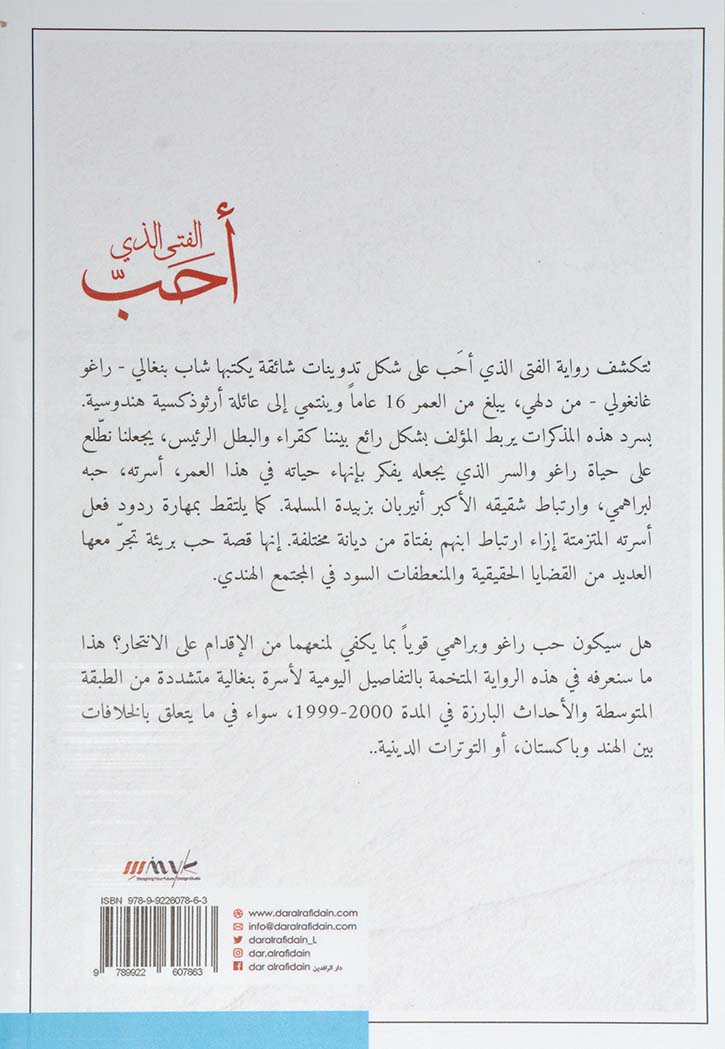 الفتى الذي
أَحَبّ
تتكشف رواية الفتى الذي أحَب على شكل تدوينات شائقة يكتبها شاب بنغالي - راغو
غانغولي - من دلهي، يبلغ من العمر 16 عاماً وينتمي إلى عائلة أرثوذكسية هندوسية.
بسرد هذه المذكرات يربط المؤلف بشكل رائع بيننا كقراء والبطل الرئيس، يجعلنا نطّلع
على حياة راغو والسر الذي يجعله يفكر بإنهاء حياته في هذا العمر، أسرته، حبه
لبراهمي، وارتباط شقيقه الأكبر أنيربان بزبيدة المسلمة. كما يلتقط بمهارة ردود فعل
أسرته المتزمتة إزاء ارتباط ابنهم بفتاة من ديانة مختلفة. إنها قصة حب بريئة تجرّ معها
العديد من القضايا الحقيقية والمنعطفات السود في المجتمع الهندي.
هل سيكون حب راغو وبراهمي قوياً بما يكفي لمنعهما من الإقدام على الانتحار؟ هذا
ما سنعرفه في هذه الرواية المتخمة بالتفاصيل اليومية لأسرة بنغالية متشددة من الطبقة
المتوسطة والأحداث البارزة في المدة 2000-1999، سواء في ما يتعلق بالخلافات
بين الهند وباكستان، أو التوترات الدينية..
Designing Your Future / Design Studio
ISBN 978-9-9226078-6-3
9 789922 607863
www.daralrafidain.com
info@daralrafidain.com
daralrafidain_L
dar.alrafidain
dar alrafidain دار الرافدين